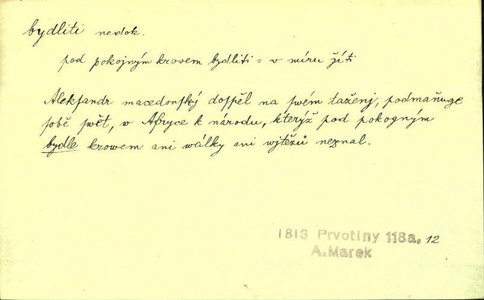 bydliti nedok.
pod pokojným krovem bydliti = v míru žíti
Aleksandr macedonſký doſpěl na ſwém taženj, podmaňuge
ſobě ſwět, w Afryce k národu, kterýž pod pokogným
bydle krowem ani wálky ani wjtězů neznal.
1813 Prvotiny 118a. 12
A. Marek